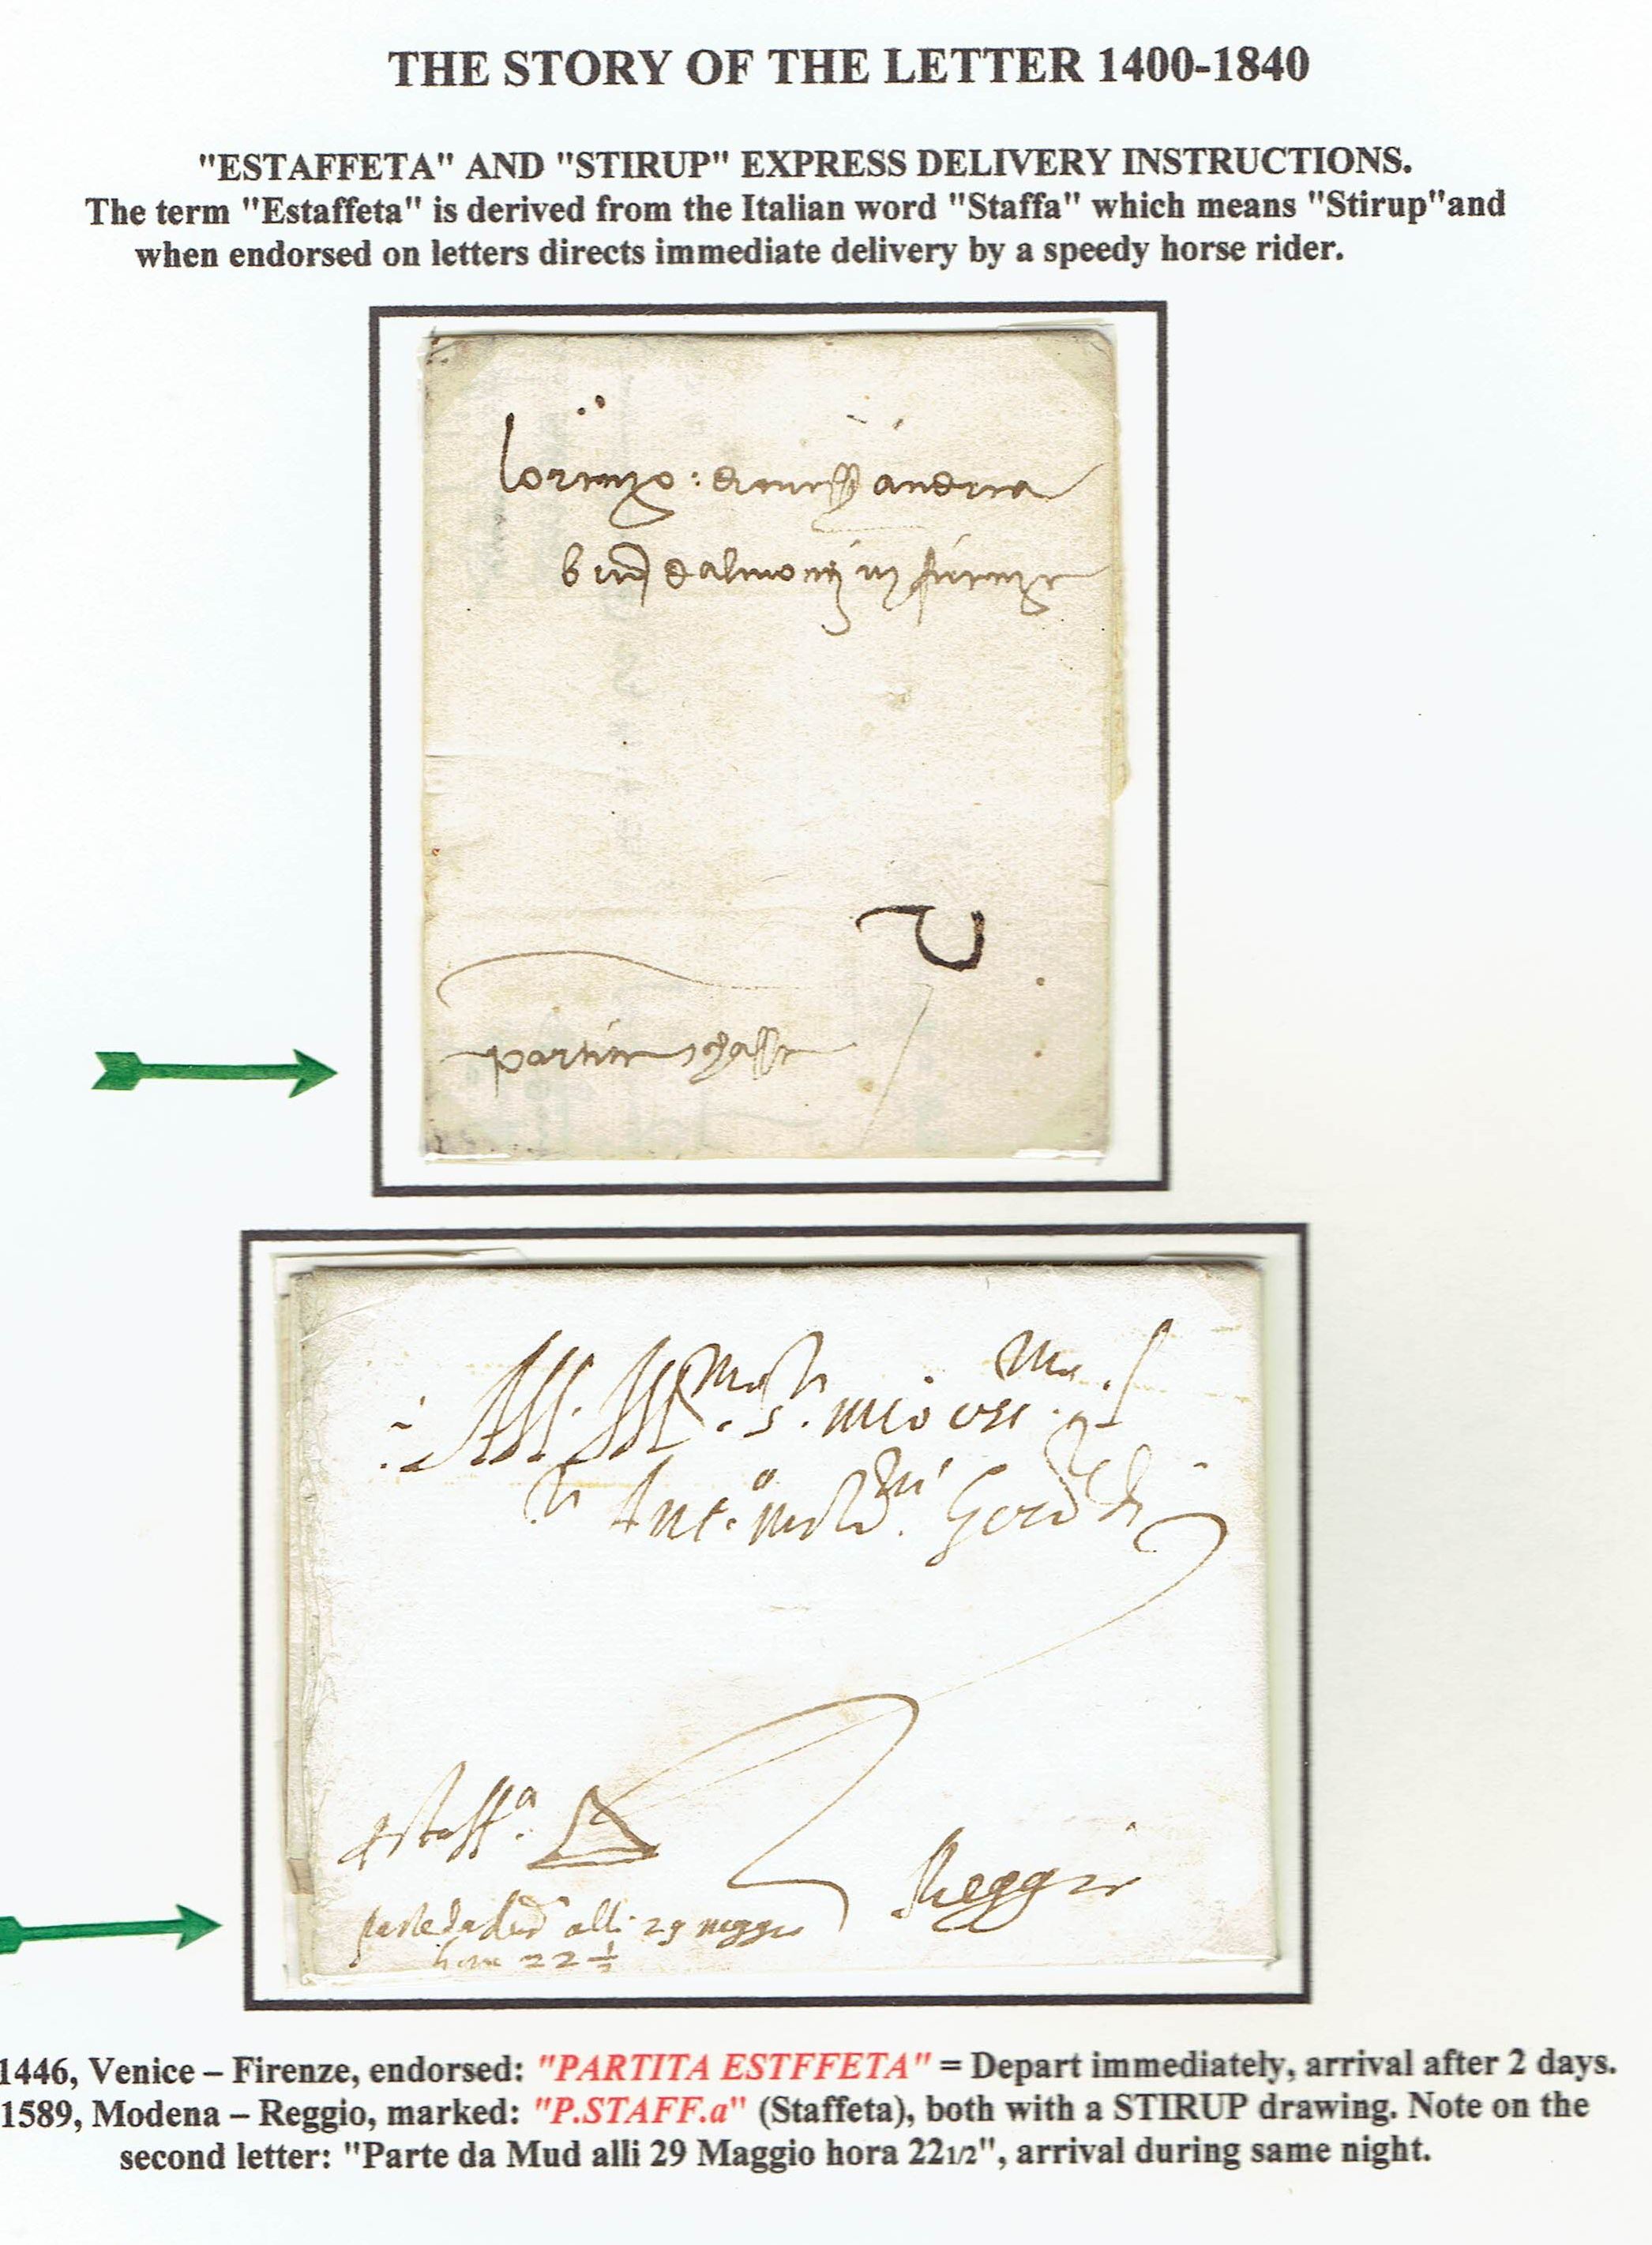 THE STORY OF THE LETTER 1400-1840
"ESTAFFETA" AND "STIRUP" EXPRESS DELIVERY INSTRUCTIONS.
The term "Estaffeta" is derived from the Italian word "Staffa" which means "Stirup"and
when endorsed on letters directs immediate delivery by a speedy horse rider.
lorenzo: andrea
in firenze
s. mio
Ant.
staff.a
Reggio
parte da alli 29 maggio
hora 22 1/2
1446, Venice – Firenze, endorsed: "PARTITA ESTFFETA" = Depart immediately, arrival after 2 days.
1589, Modena – Reggio, marked: "P.STAFF.a" (Staffeta), both with a STIRUP drawing. Note on the
second letter: "Parte da Mud alli 29 Maggio hora 221/2", arrival during same night.